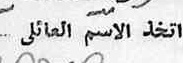 اتخذ الاسم العائلي